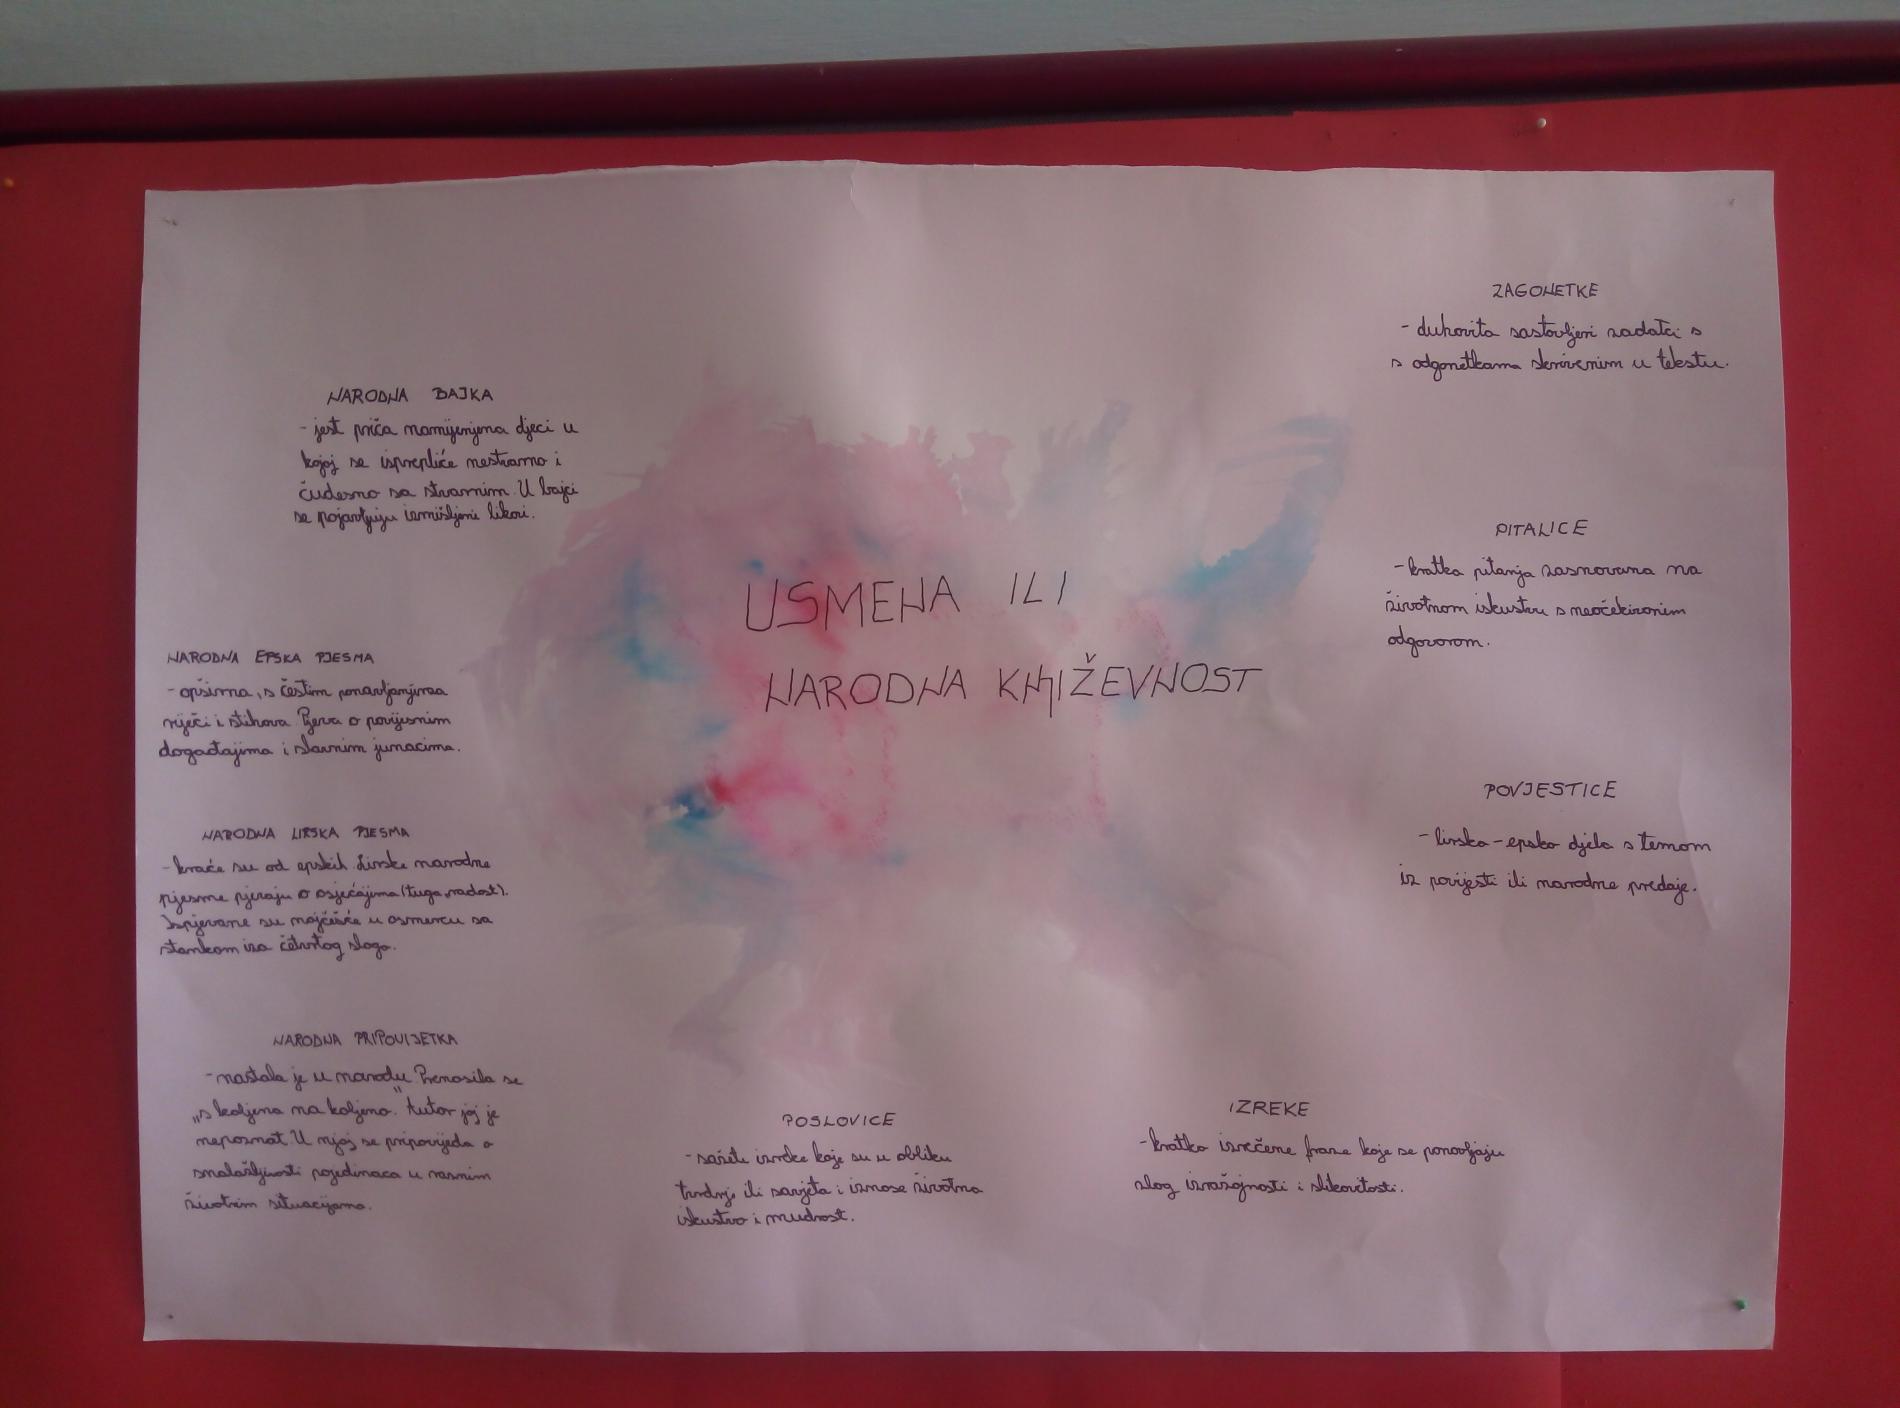 USMENA ILI
NARODNA KNJIŽEVNOST
NARODNA BAJKA
- jest priča namijenjena djeci u
kojoj se isprepliće nestvarno i
čudesno sa stvarnim. U bajci
se pojavljuju izmišljeni likovi.
NARODNA EPSKA PJESMA
- opširna, s čestim ponavljanjima
riječi i stihova. Pjeva o povijesnim
događajima i slavnim junacima.
NARODNA LIRSKA PJESMA
- kraće su od epskih. Lirske narodne
pjesme pjevaju o osjećajima (tuga, radost).
Ispjevane su najčešće u osmercu sa
stankom iza četvrtog sloga.
NARODNA PRIPOVIJETKA
- nastala je u narodu. Prenosila se
„s koljena na koljeno." Autor joj je
nepoznat. U njoj se pripovijeda o
snalažljivosti pojedinaca u raznim
životnim situacijama.
POSLOVICE
- sažete izreke koje su u obliku
tvrdnje ili savjeta i iznose životno
iskustvo i mudrost.
IZREKE
- kratko izrečene fraze koje se ponavljaju
zbog izražajnosti i slikovitosti.
POVJESTICE
- lirsko-epska djela s temom
iz povijesti ili narodne predaje.
PITALICE
- kratka pitanja zasnovana na
životnom iskustvu s neočekivanim
odgovorom.
ZAGONETKE
- duhovito sastavljeni zadatci s
s odgonetkama skrivenim u tekstu.